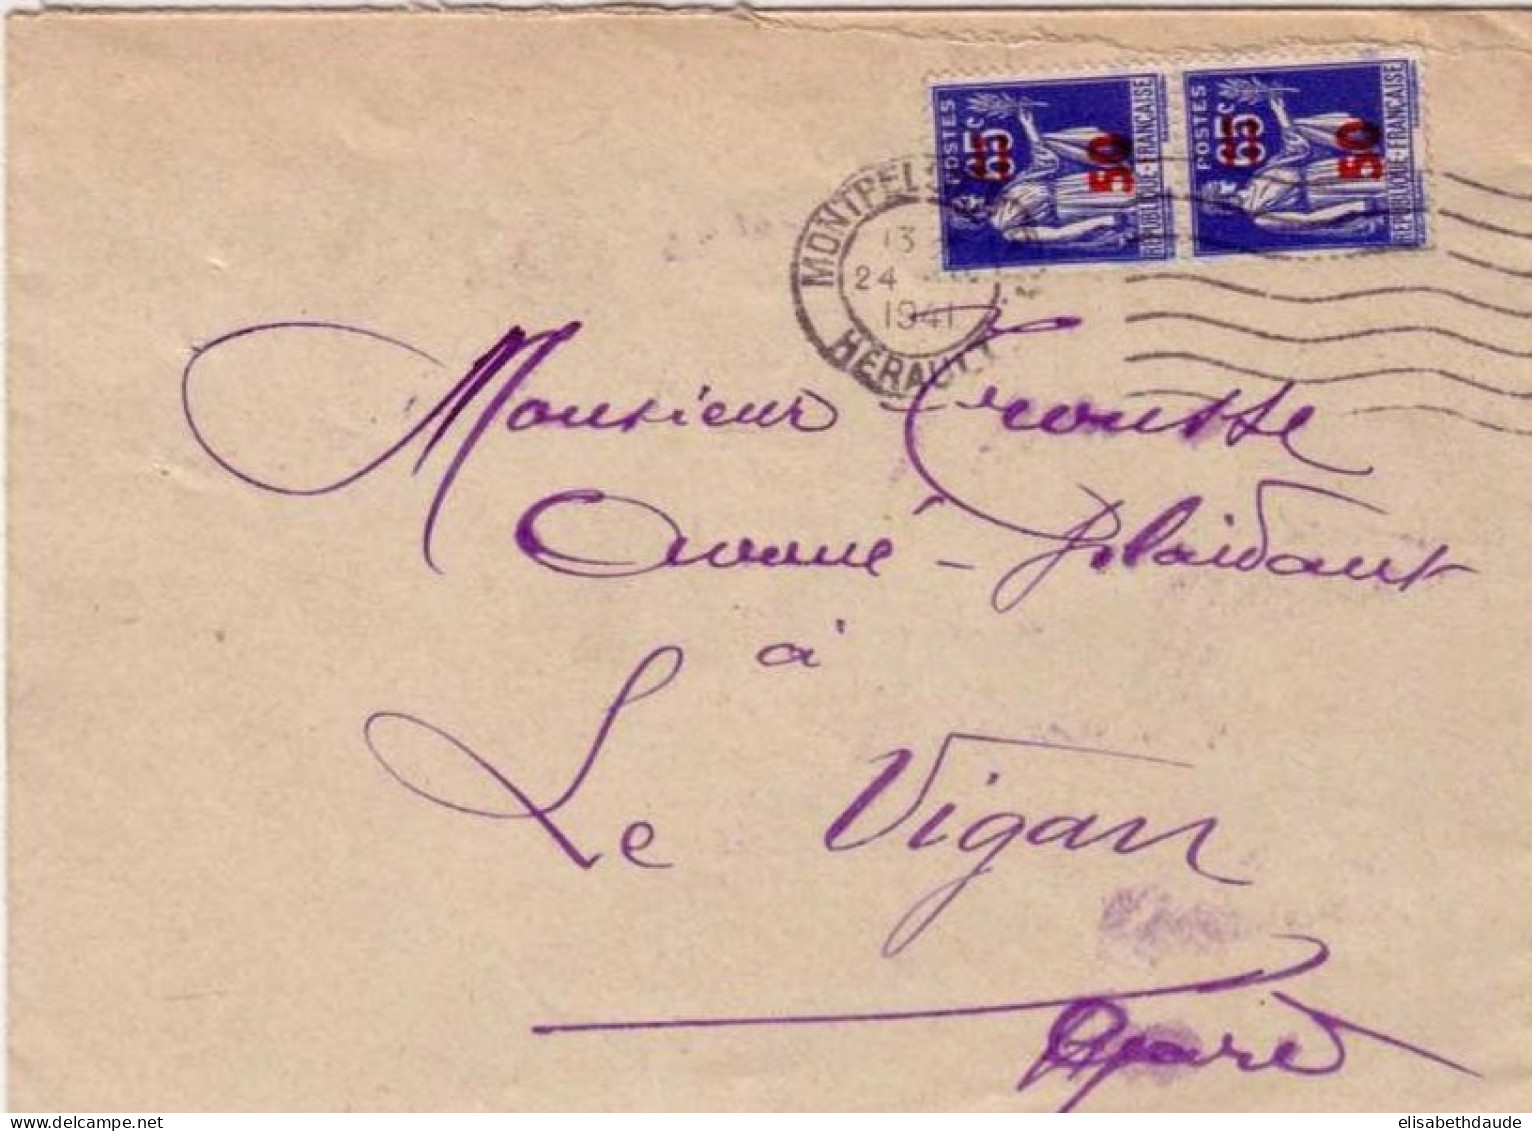 POSTES 65c 50 REPUBLIQUE-FRANÇAISE
POSTES 65c 50 REPUBLIQUE-FRANÇAISE
MONTPEL
13
24
1941
HERAULT
Monsieur Trousse
Avoué - plaidant
à
Le Vigan
elisabethdaude